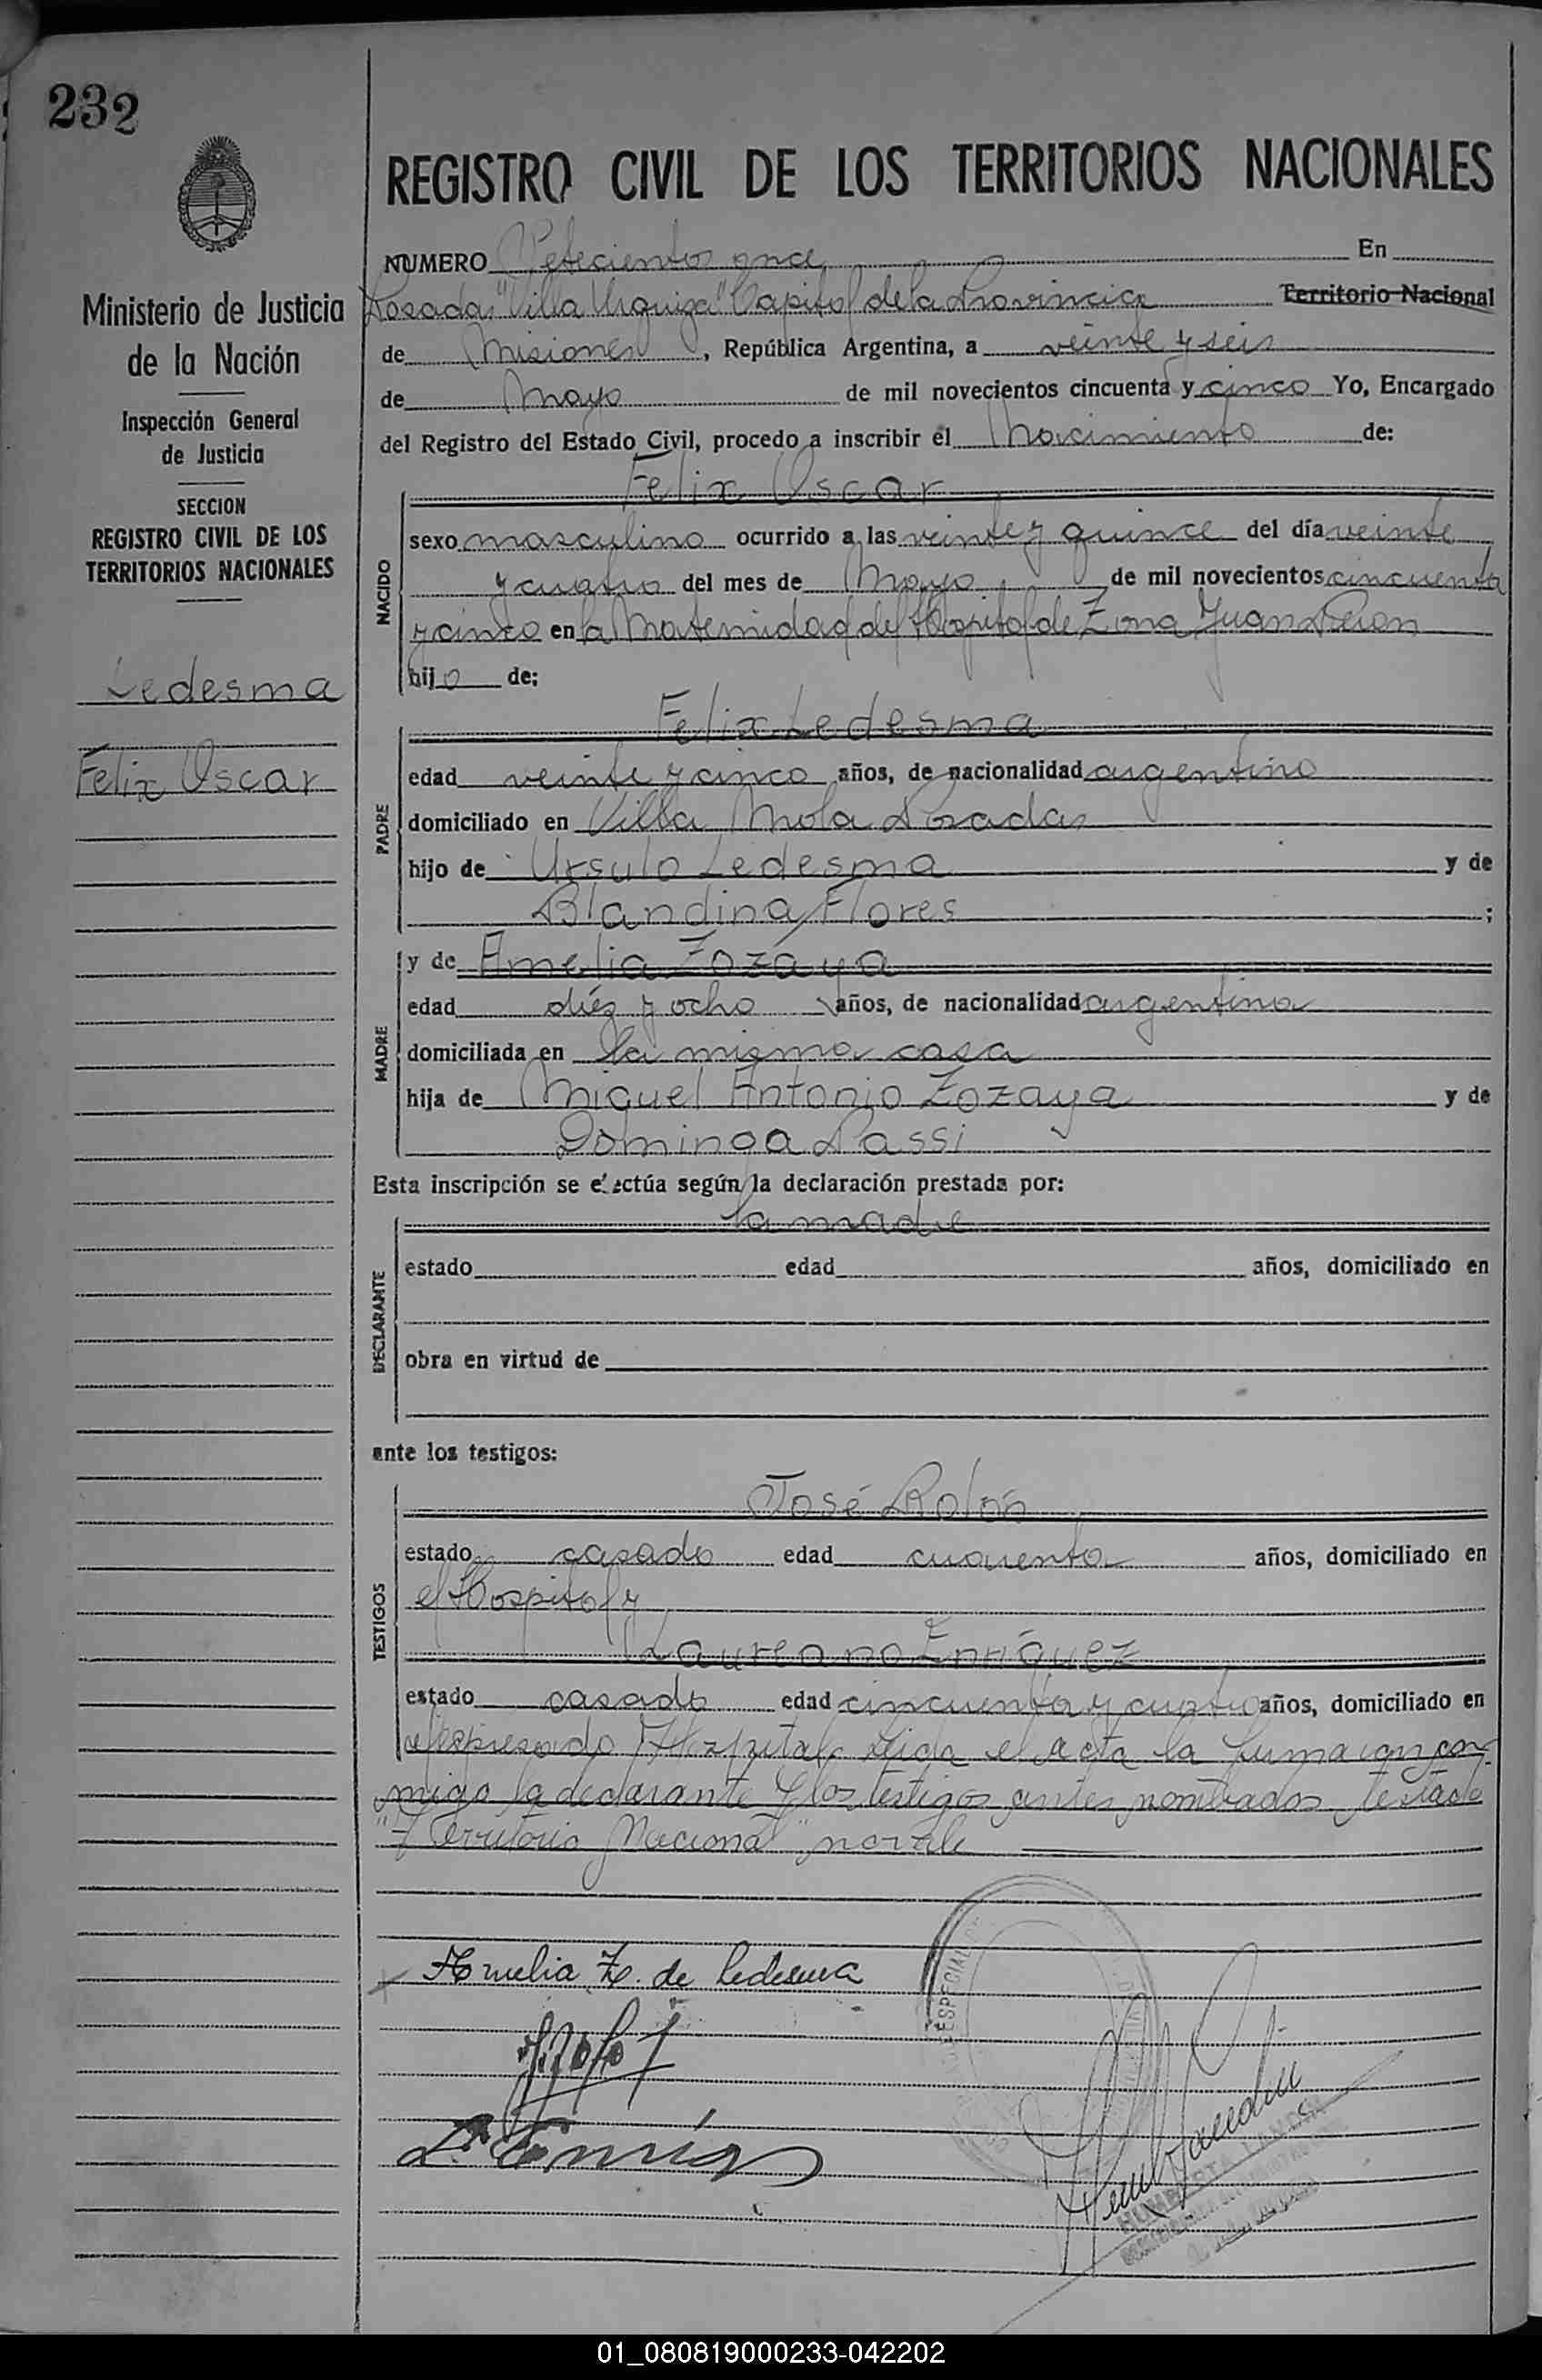 232
REGISTRO CIVIL DE LOS TERRITORIOS NACIONALES
NUMERO Seteciento once En
Posadas "Villa Urquiza" Capital de la Provincia Territorio Nacional
de Misiones, República Argentina, a veinte y seis
de Mayo de mil novecientos cincuenta y cinco Yo, Encargado
del Registro del Estado Civil, procedo a inscribir el Nacimiento de:
Ministerio de Justicia
de la Nación
Inspección General
de Justicia
SECCION
REGISTRO CIVIL DE LOS
TERRITORIOS NACIONALES
Ledesma
Felix Oscar
NACIDO
Felix Oscar
sexo masculino ocurrido a las veinte y quince del día veinte
y cuatro del mes de Mayo de mil novecientos cincuenta
y cinco en la Maternidad del Hospital de Zona Juan Peron
hijo de:
PADRE
Felix Ledesma
edad veinte y cinco años, de nacionalidad argentino
domiciliado en Villa Mola Posadas
hijo de Ursulo Ledesma y de
Blandina Flores ;
MADRE
y de Amelia Zozaya
edad diéz y ocho años, de nacionalidad argentina
domiciliada en la misma casa
hija de Miguel Antonio Zozaya y de
Dominga Passi
Esta inscripción se efectúa según la declaración prestada por:
DECLARANTE
la madre
estado edad años, domiciliado en
obra en virtud de
ante los testigos:
TESTIGOS
José Rolón
estado casado edad cuarenta años, domiciliado en
el Hospital y
Laureano Enriquez
estado casado edad cincuenta y cuatro años, domiciliado en
el espresado Hospital. Leida el acta la firmaron con-
migo la declarante y los testigos antes nombrados testado
"Territorio Nacional" no vale
Amelia Z. de Ledesma
ESPECIAL
01_080819000233-042202